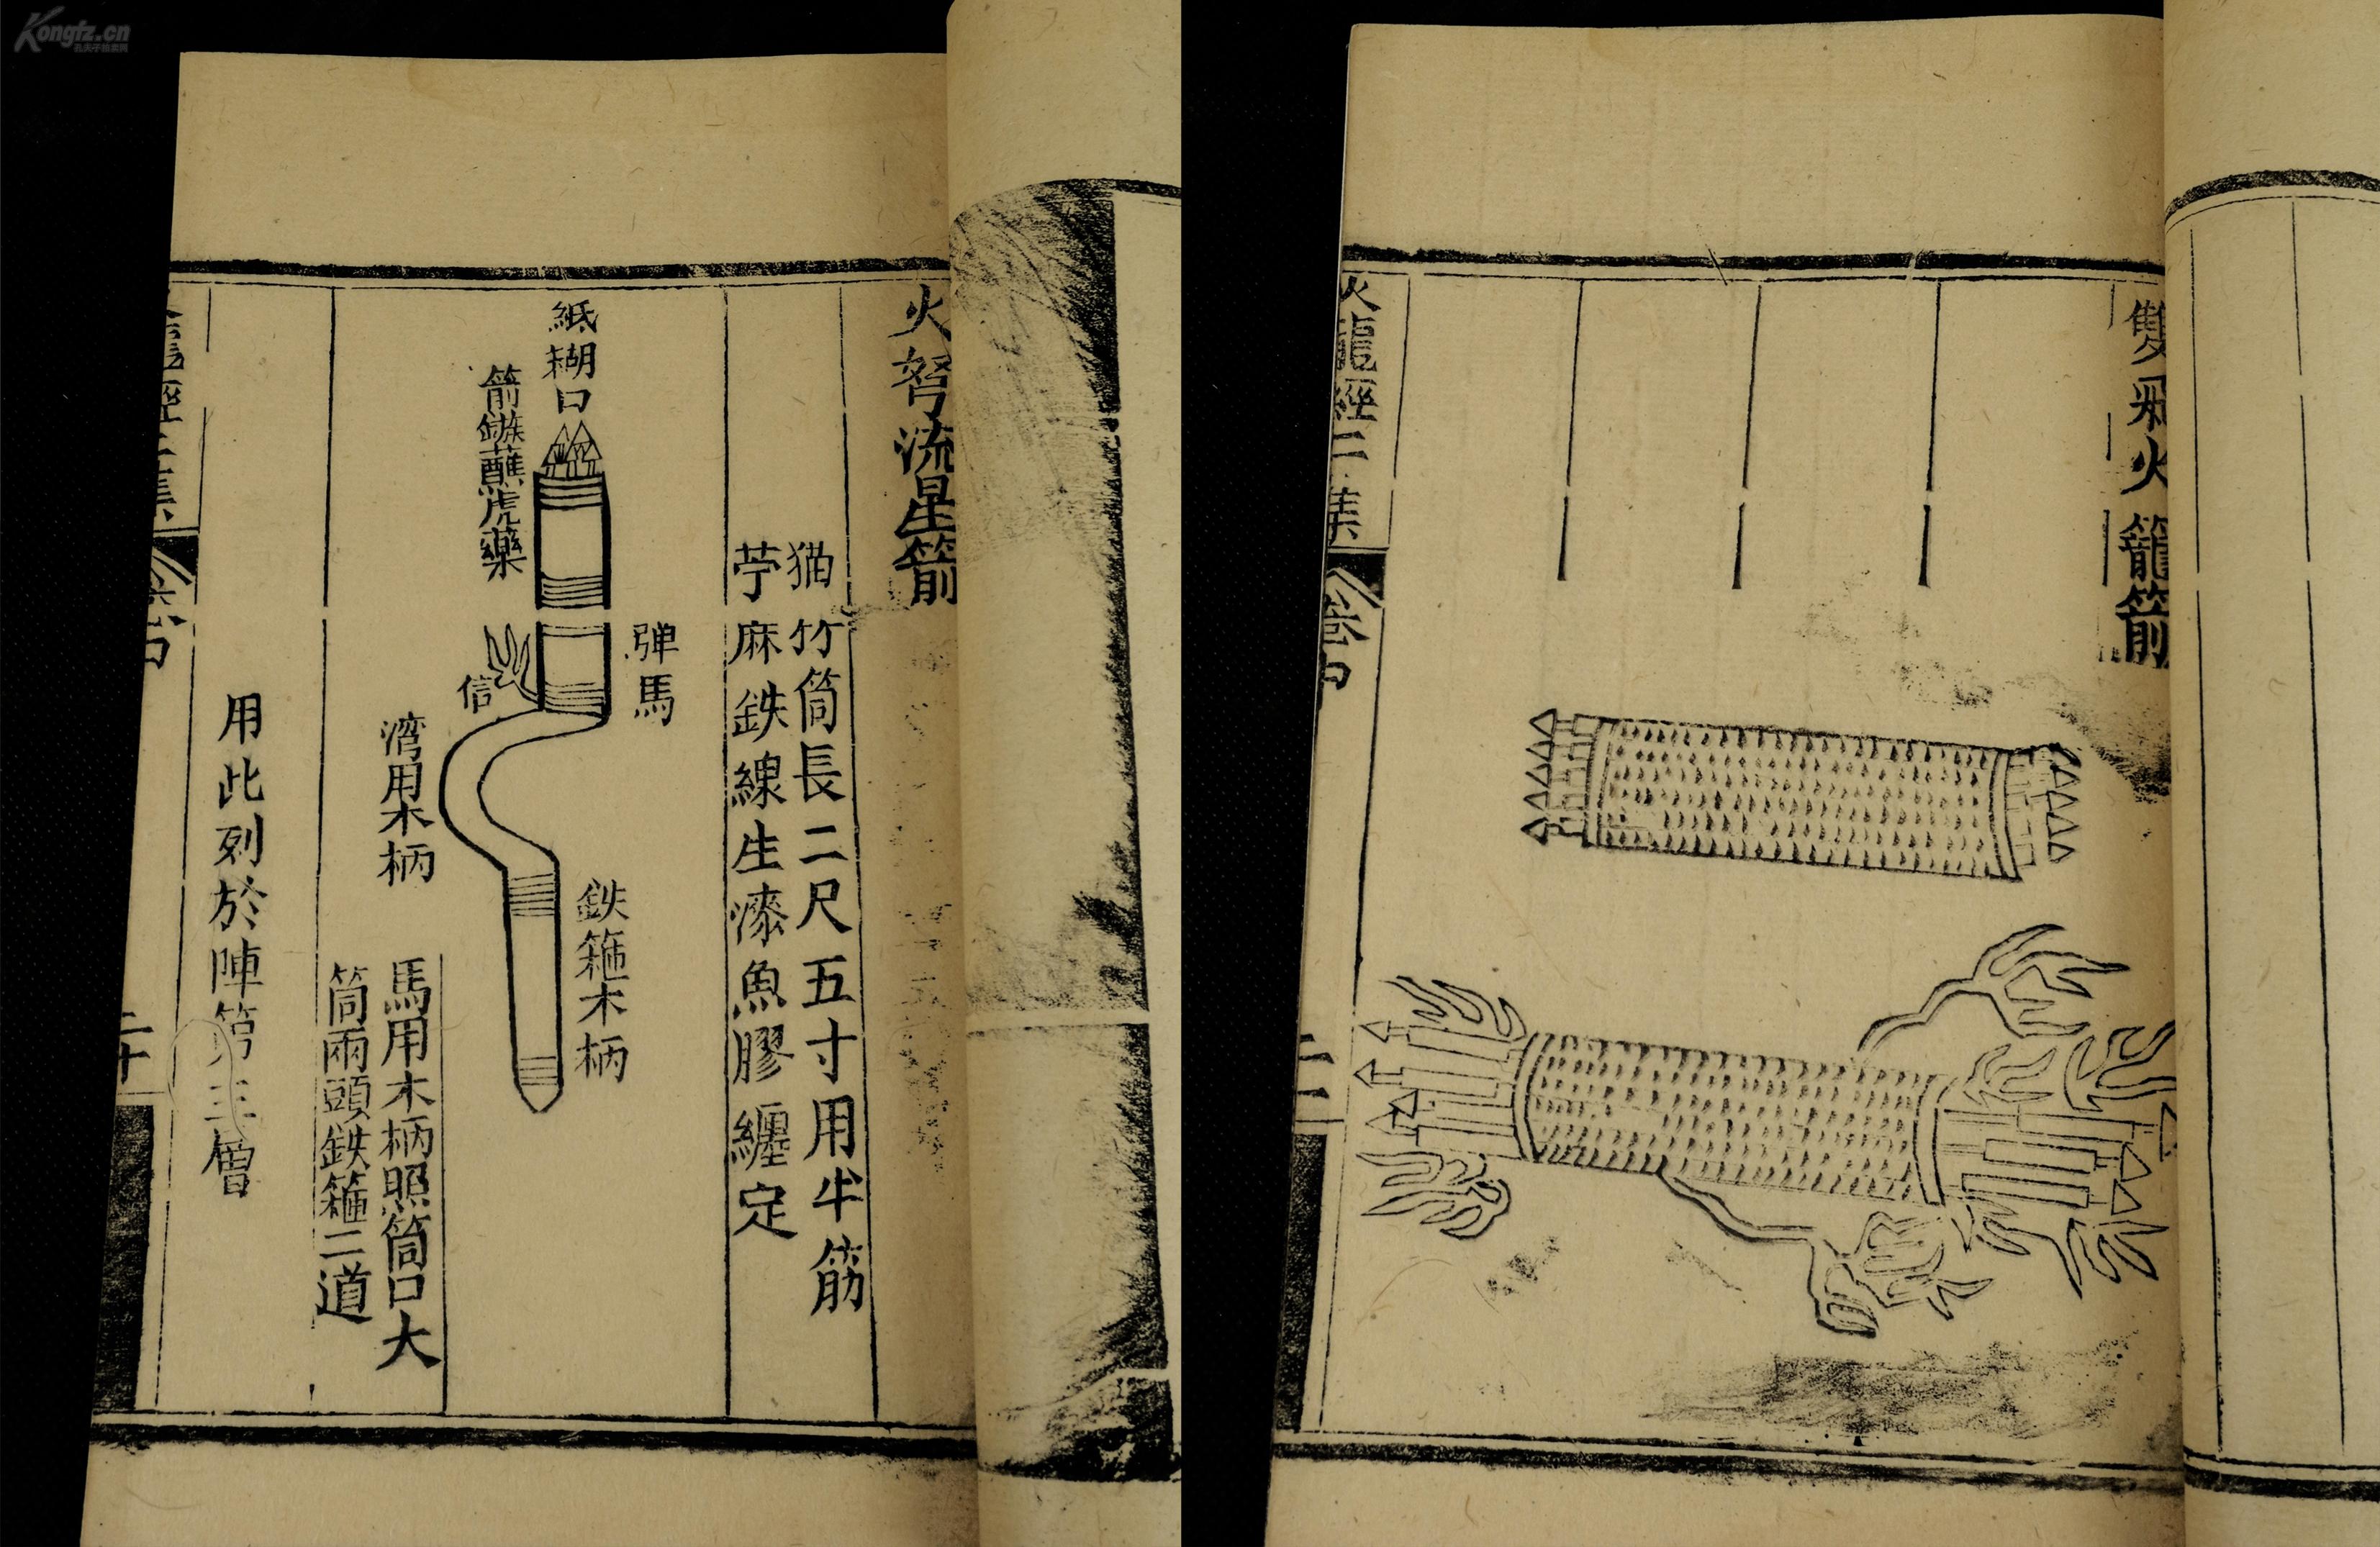 Kongfz.cn
火弩流星箭
猫竹筒長二尺五寸用半筋
苧麻鉄線生漆魚膠纏定
紙糊口
箭鏃蘸虎藥
弾馬
信
湾用木柄
鉄箍木柄
馬用木柄照筒口大
筒兩頭鉄箍二道
用此列於陣第三層
二十
雙飛火籠箭
火龍經二集
卷中
二十一